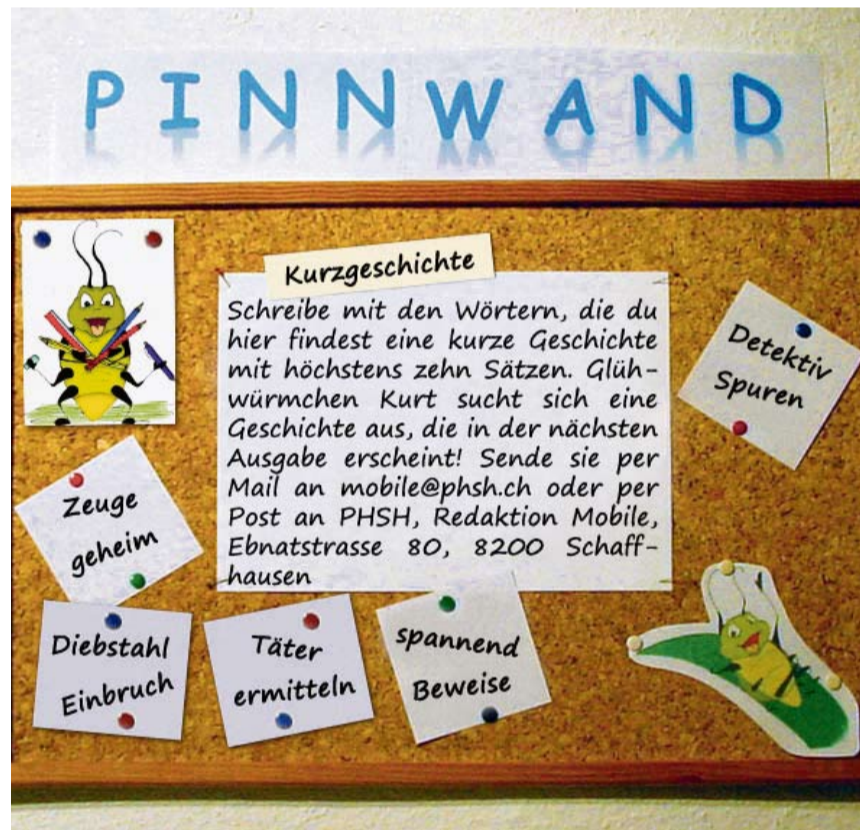 PINNWAND
Kurzgeschichte
Schreibe mit den Wörtern, die du
hier findest eine kurze Geschichte
mit höchstens zehn Sätzen. Glüh-
würmchen Kurt sucht sich eine
Geschichte aus, die in der nächsten
Ausgabe erscheint! Sende sie per
Mail an mobile@phsh.ch oder per
Post an PHSH, Redaktion Mobile,
Ebnatstrasse 80, 8200 Schaff-
hausen
Detektiv
Spuren
Zeuge
geheim
Diebstahl
Einbruch
Täter
ermitteln
spannend
Beweise